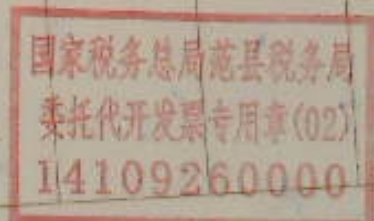 国家税务总局范县税务局
委托代开发票专用章(02)
14109260000